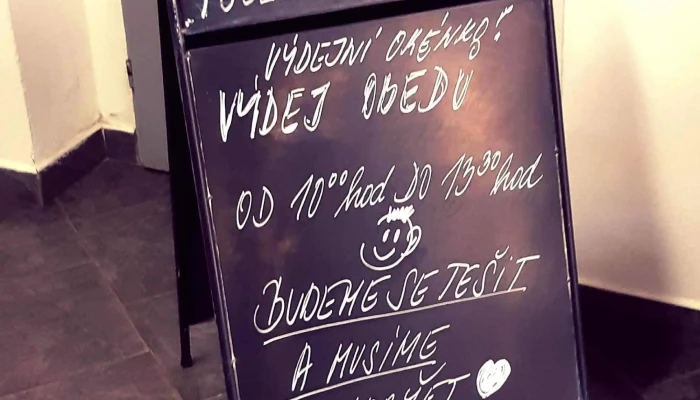 VÝDEJNÍ OKÉNKO!
VÝDEJ OBEDU
OD 10⁰⁰ hod DO 13³⁰ hod
BUDEME SE TEŠIT
A MUSÍME